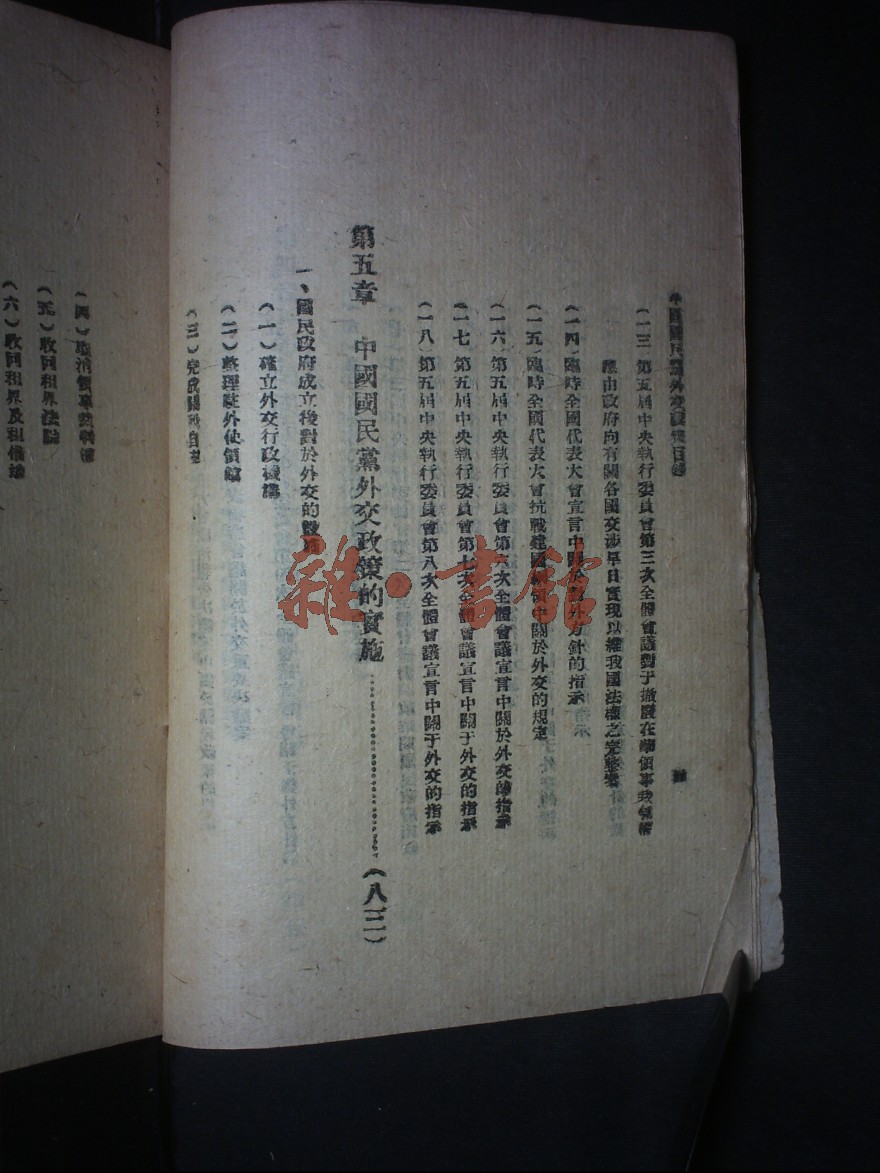 中國國民黨外交政策目錄
(一三)第五屆中央執行委員會第三次全體會議對于撤廢在華領事裁判權
應由政府向有關各國交涉早日實現以維我國法權之完整案
(一四)臨時全國代表大會宣言中關於對外方針的指示
(一五)臨時全國代表大會抗戰建國綱領中關於外交的規定
(一六)第五屆中央執行委員會第六次全體會議宣言中關於外交的指示
(一七)第五屆中央執行委員會第七次全體會議宣言中關于外交的指示
(一八)第五屆中央執行委員會第八次全體會議宣言中關于外交的指示
第五章 中國國民黨外交政策的實施……(八三)
一、國民政府成立後對於外交的設施
(一)確立外交行政機構
(二)整理駐外使領館
(三)完成關稅自主
(四)取消領事裁判權
(五)收回租界法院
(六)收回租界及租借地
雜·書館